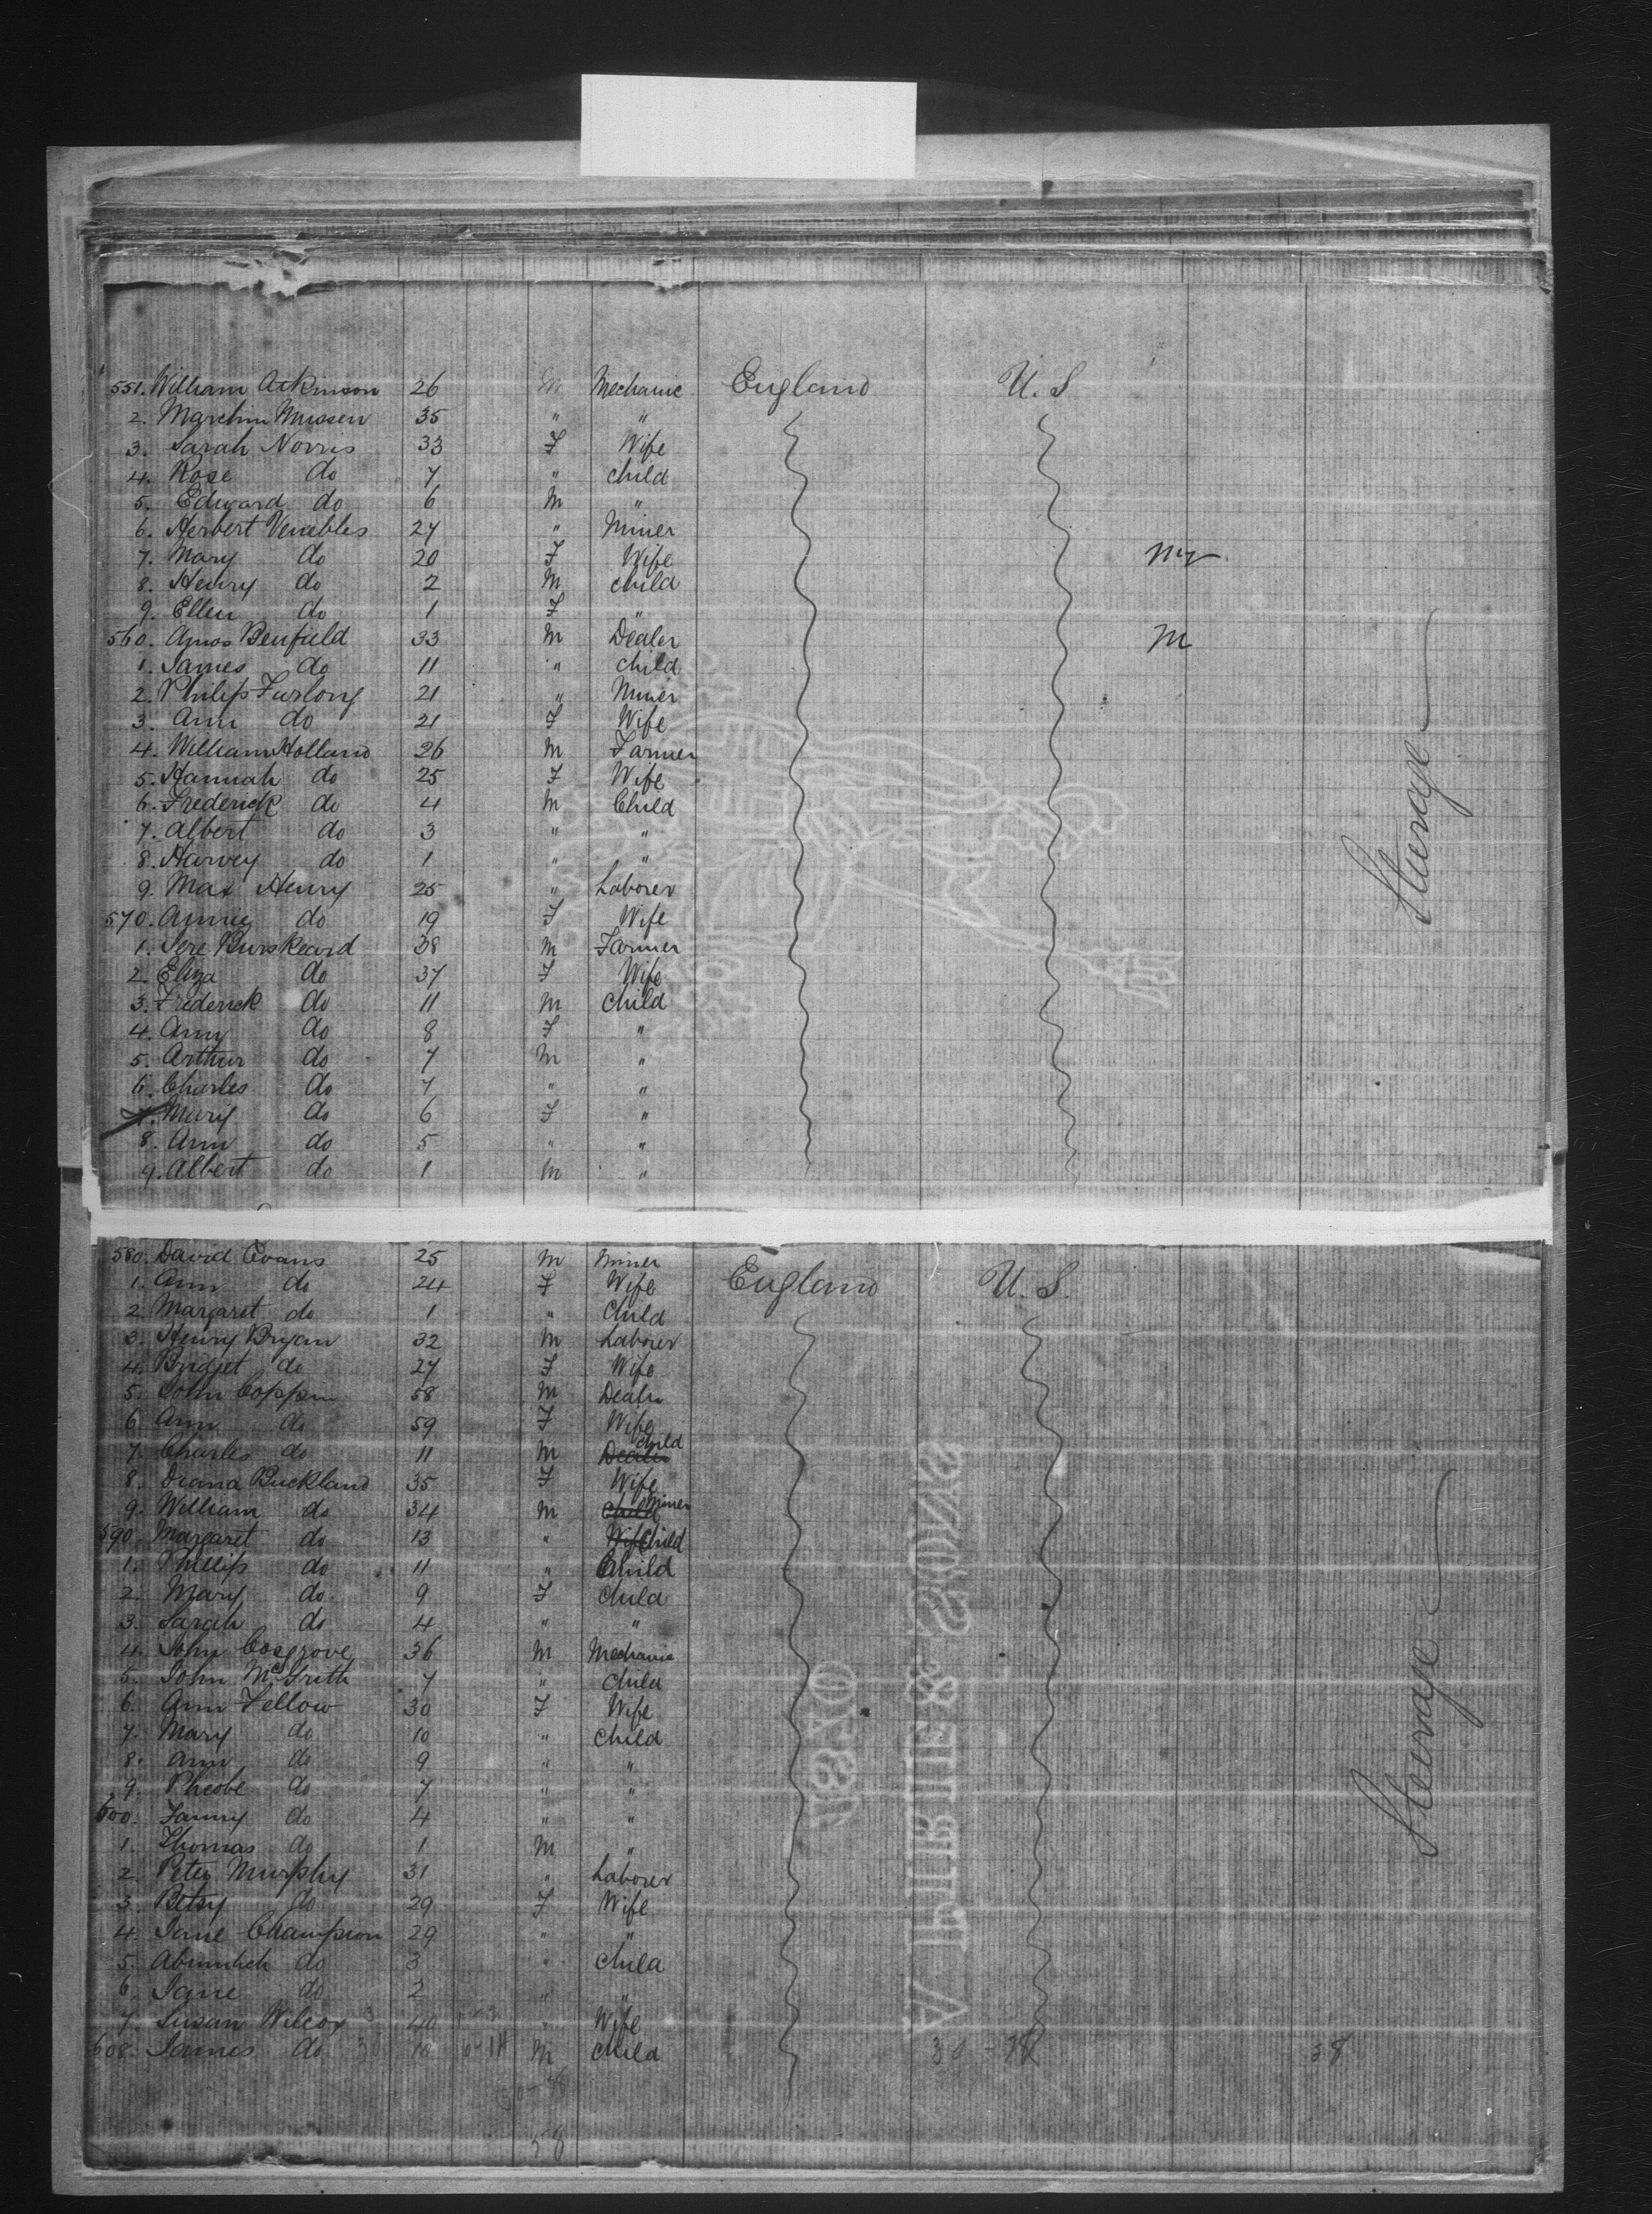 551. William Atkinson 26 M Mechanic England U.S
2. Mussen 35 " "
3. Sarah Norris 33 F Wife
4. Rose do 7 " child
5. Edward do 6 M "
6. Herbert Venables 27 " Miner
7. Mary do 20 F Wife
8. Henry do 2 M child
9. Ellen do 1 F "
560. Amos Benfield 33 M Dealer M
1. James do 11 " child
2. Philip Furlong 21 " Miner
3. Ann do 21 F Wife
4. William Holland 26 M Farmer
5. Hannah do 25 F Wife
6. Frederick do 4 M Child
7. Albert do 3 " "
8. Harvey do 1 " "
9. Max Henry 25 " Laborer
570. Annie do 19 F Wife
1. Jere 38 M Farmer
2. Eliza do 37 F Wife
3. Frederick do 11 M child
4. Amy do 8 F "
5. Arthur do 7 M "
6. Charles do 7 " "
7. Mary do 6 F "
8. Ann do 5 " "
9. Albert do 1 M "
Steerage
580. David Evans 25 M Miner England U.S.
1. Ann do 24 F Wife
2. Margaret do 1 " Child
3. Henry Bryan 32 M Laborer
4. Bridget do 27 F Wife
5. John 58 M Dealer
6. Ann do 59 F Wife
7. Charles do 11 M Dealer child
8. Diana Buckland 35 F Wife
9. William do 34 M child Miner
590. Margaret do 13 " Wife Child
1. Phillip do 11 " Child
2. Mary do 9 F Child
3. Sarah do 4 " "
4. John Cosgrove 36 M Mechanic
5. John 7 " Child
6. Ann Fellow 30 F Wife
7. Mary do 10 " Child
8. Ann do 9 " "
9. Pheobe do 7 " "
600. Fanny do 4 " "
1. Thomas do 1 M "
2. Peter Murphy 31 " Laborer
3. Betsy do 29 F Wife
4. Jane Champion 29 " "
5. do 3 " Child
6. Jane do 2 " "
7. Susan Wilcox 40 " Wife
608. James do 10 M Child
Steerage
A PIRIE & SONS
1880
38
58